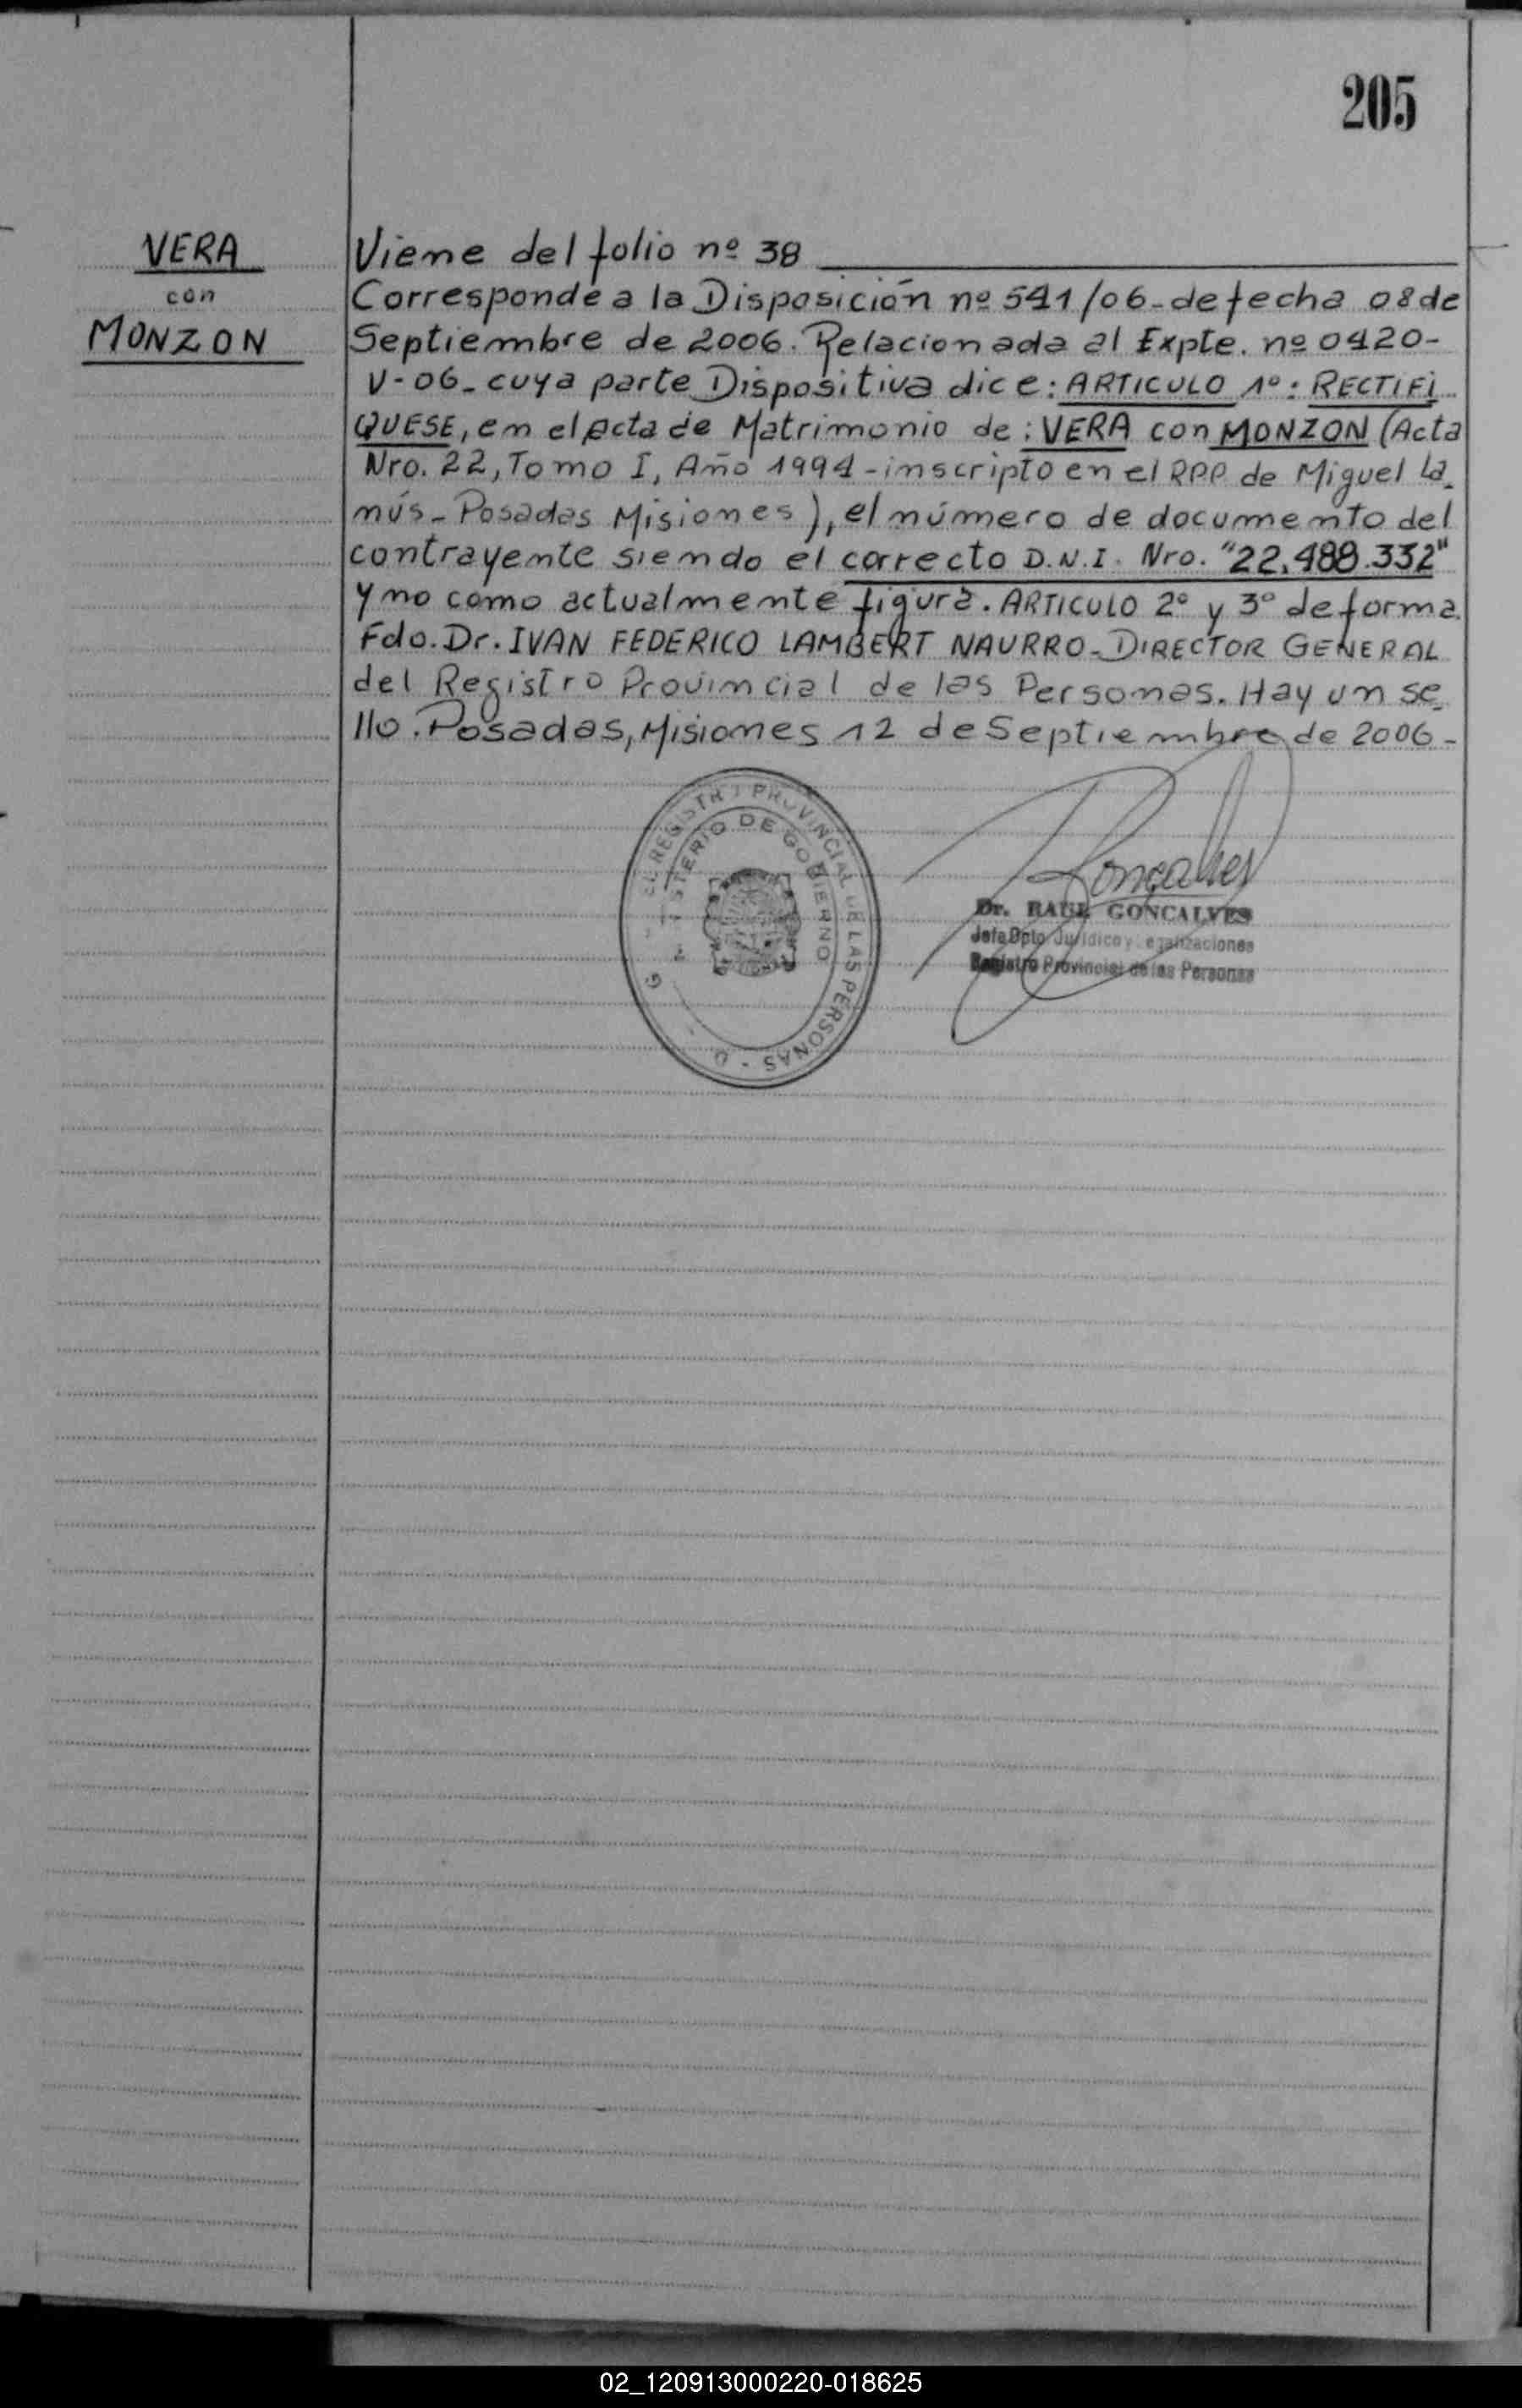 205
VERA
con
MONZON
Viene del folio nº 38
Corresponde a la Disposición nº 541/06-de fecha 08 de
Septiembre de 2006. Relacionada al Expte. nº 0420-
V-06-cuya parte Dispositiva dice: ARTICULO 1º: RECTIFI
QUESE, en el acta de Matrimonio de: VERA con MONZON (Acta
Nro. 22, Tomo I, Año 1994-inscripto en el RPP de Miguel La_
nús-Posadas Misiones), el número de documento del
contrayente siendo el correcto D.N.I. Nro. "22.488.332"
y no como actualmente figura. ARTICULO 2º y 3º de forma.
Fdo. Dr. IVAN FEDERICO LAMBERT NAVRRO-DIRECTOR GENERAL
del Registro Provincial de las Personas. Hay un se_
llo. Posadas, Misiones 12 de Septiembre de 2006-
REGISTRO PROVINCIAL DE LAS PERSONAS
DE GOBIERNO
Gonçalves
Dr. RAUL GONCALVES
Jefe Dpto Jurídico y Legalizaciones
Registro Provincial de las Personas
02_120913000220-018625